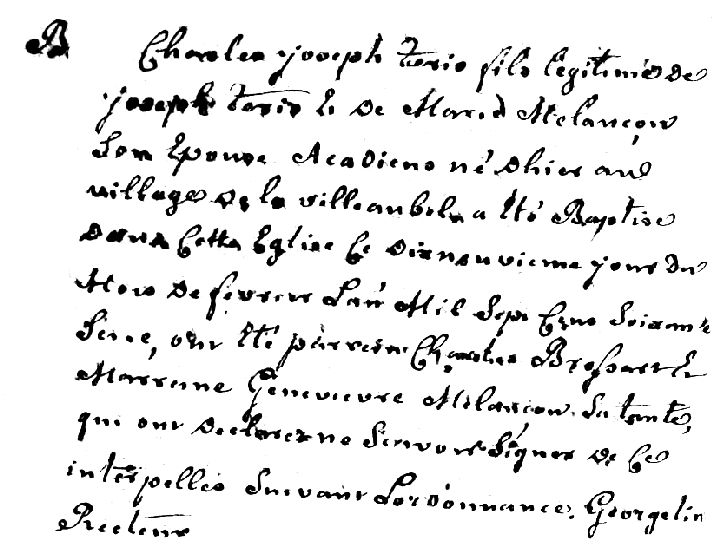 B Charles joseph terio fils legitime de
joseph terio & de Marie Melançon
Son Epouse Acadiens né dhier au
village de la villeaubel a été Baptise
dans Cette Eglise Ce dixneuvieme jour du
Mois de fevrier L'an Mil Sept Cens Soixante
Seize, ont été parrain Charles Brossart &
Marraine Genevieve Milançon Sa tante,
qui ont declarez ne Scavoir Signer de Ce
interpelles Suivant Lordonnance. Georgelin
Recteur